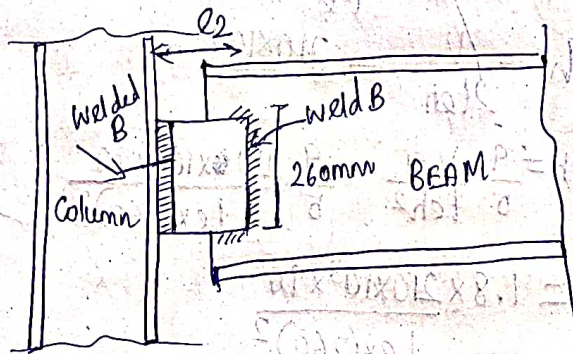 e2
Welded
B
weld B
260mm
BEAM
Column